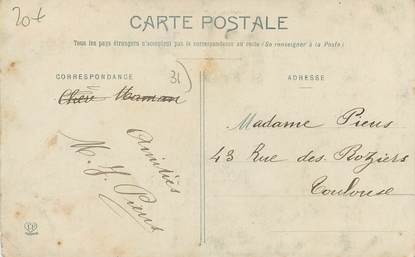 20f
CARTE POSTALE
Tous les pays étrangers n'acceptent pas la correspondance au recto (Se renseigner à la Poste)
CORRESPONDANCE
31
ADRESSE
Chère Maman
Amitiés
M. J. Piens
Madame Piens
43 Rue des Roziers
Toulouse